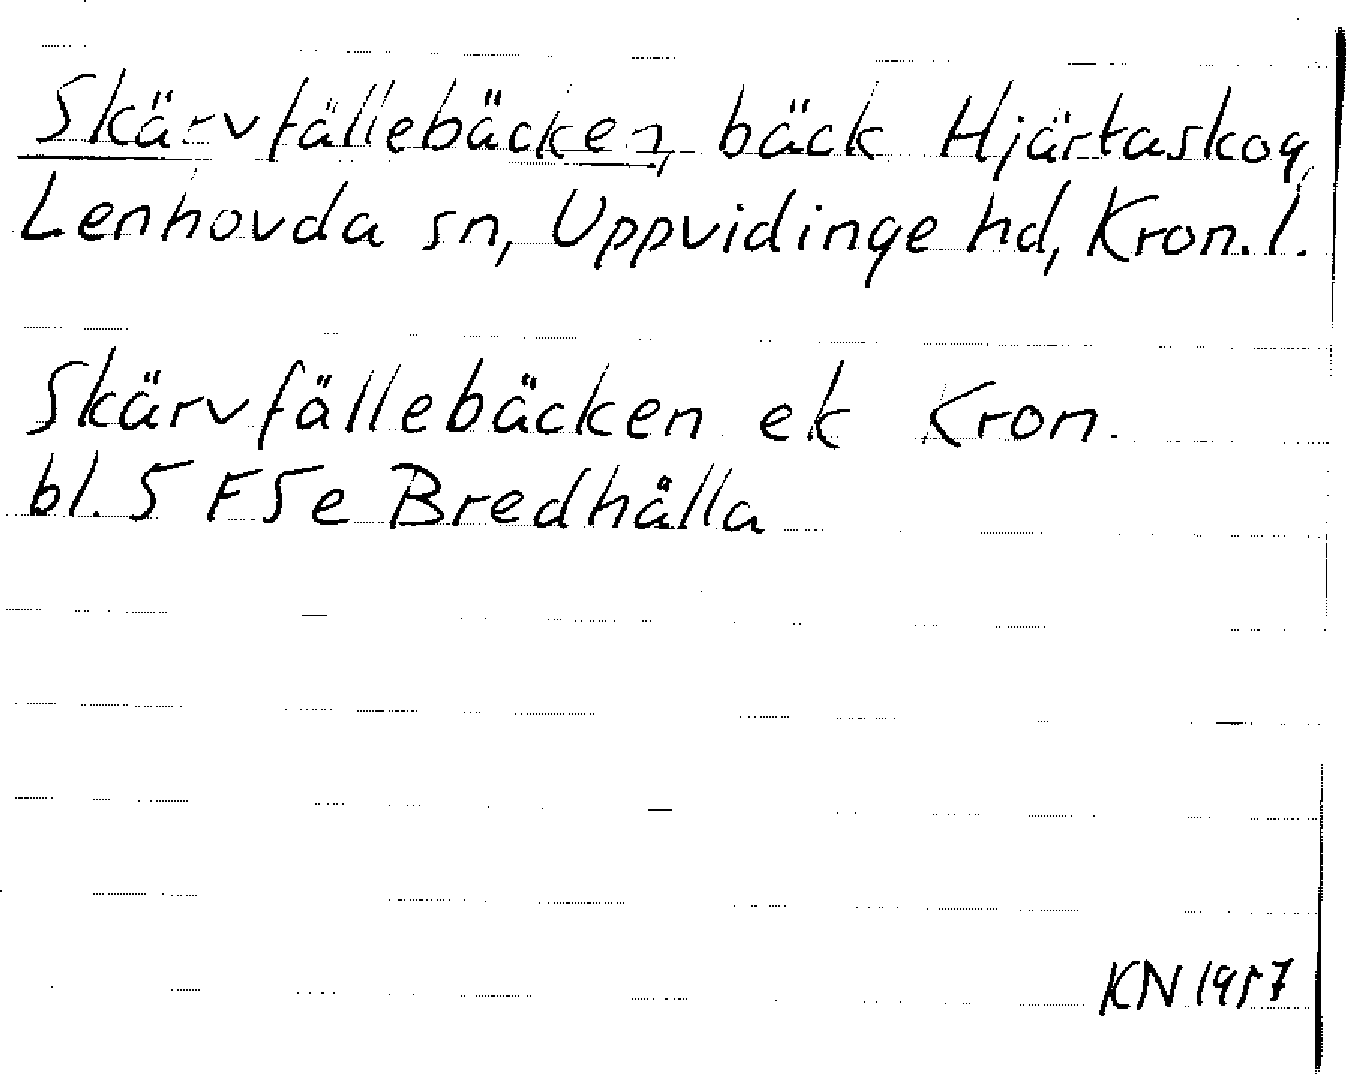 Skärvfällebäcken, bäck Hjärtaskog,
Lenhovda sn, Uppvidinge hd, Kron. l.
Skärvfällebäcken ek Kron.
bl. 5 F5e Bredhålla
KN 1957